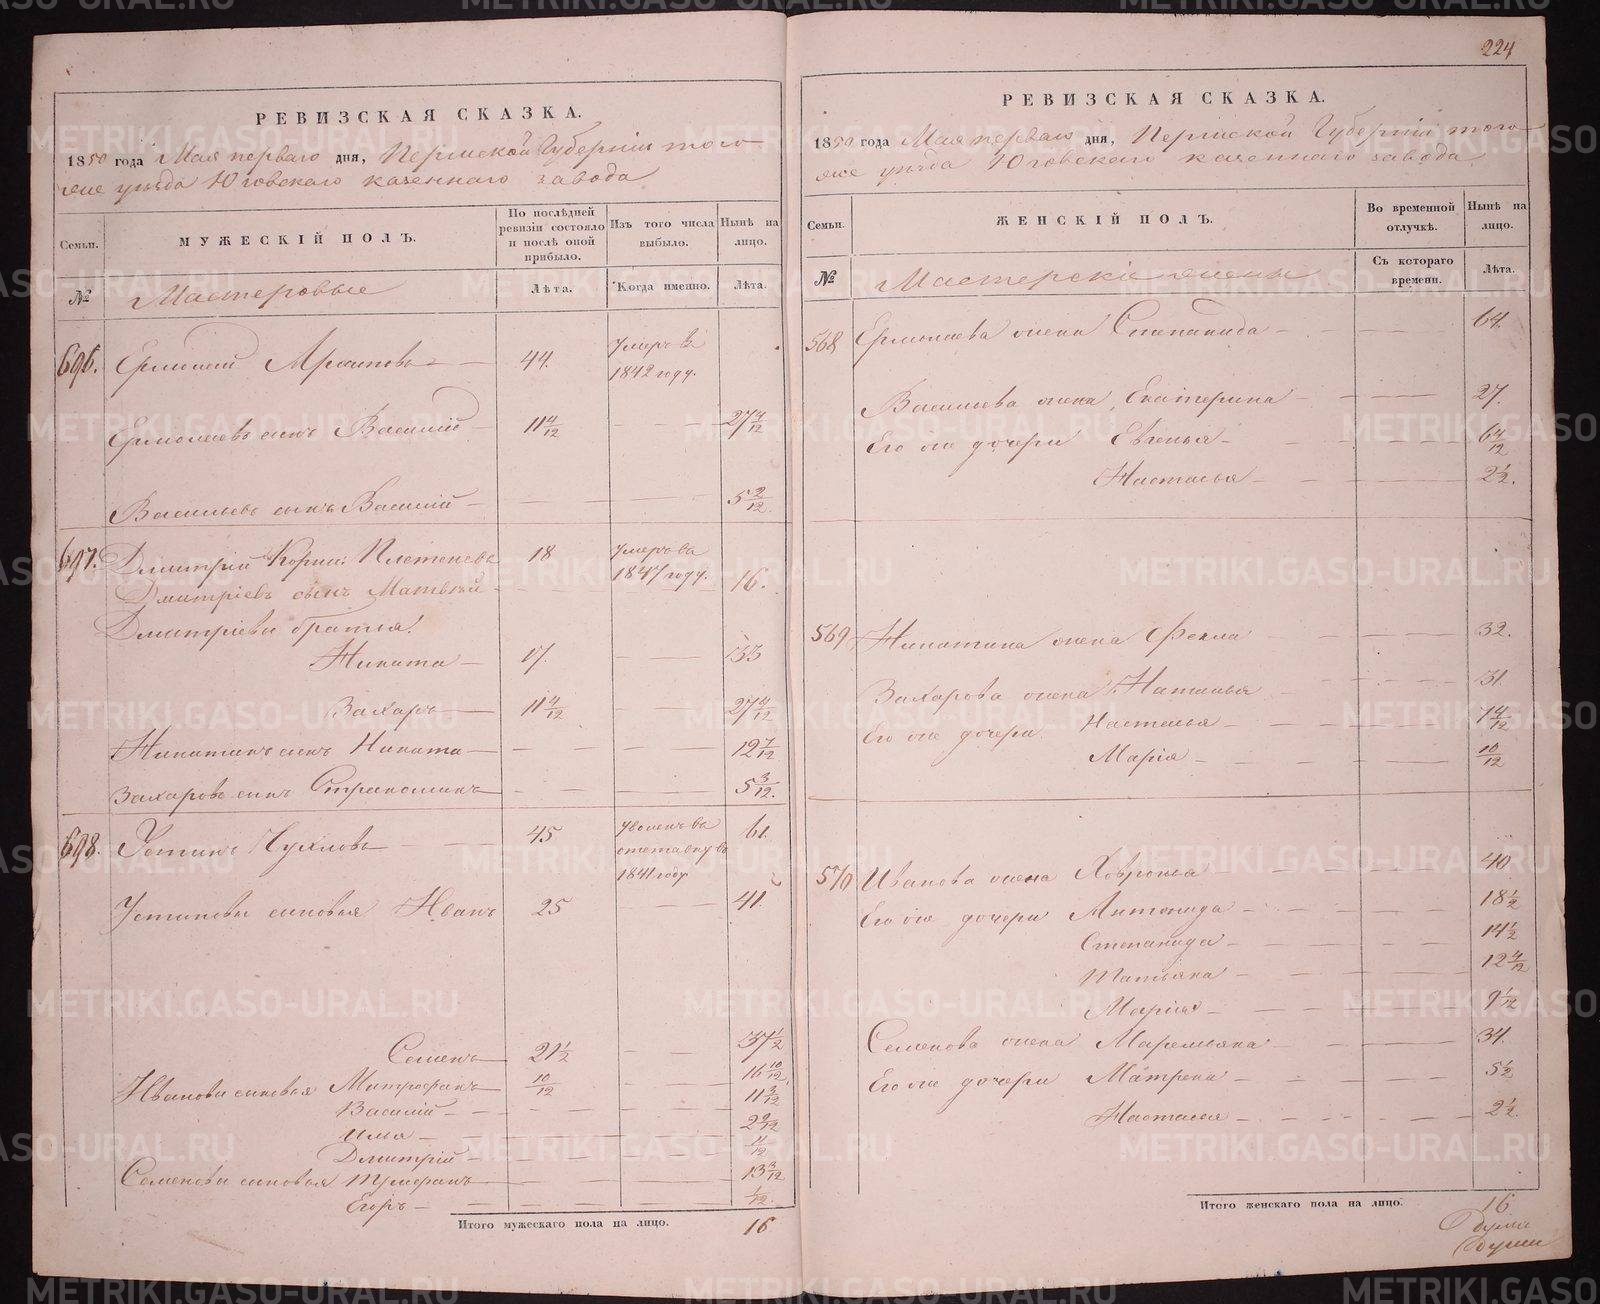 РЕВИЗСКАЯ СКАЗКА.
1850 года Мая перваго дня, Пермской Губерніи того
же уѣзда Юговскаго казеннаго завода
Семьи.
МУЖЕСКІЙ ПОЛЪ.
По послѣдней ревизіи состояло и послѣ оной прибыло.
Изъ того числа выбыло.
Нынѣ на лицо.
№
Мастеровые
Лѣта.
Когда именно.
Лѣта.
696. Ермолай 44. Умеръ въ 1842 году.
Ермолаевъ сынъ Василій 11 4/12 — 27 4/12
Васильевъ сынъ Василій — — 5 2/12.
697. Дмитрій Корни: Плетеневъ 18 Умеръ въ 1847 году.
Дмитріевъ сынъ Матвѣй — — 16.
Дмитріевы братья:
Никита — 17. — 33
Захаръ — 11 4/12 — 27 4/12
Никитинъ сынъ Никита — — 12 7/12
Захаровъ сынъ — — 5 3/12.
698. Устинъ Чухловъ 45 Уволенъ въ отставку въ 1841 году 61.
Устиновы сыновья Иванъ 25 — 41.
Семенъ — 21 1/2 — 37 1/2
Ивановы сыновья Митрофанъ — 10/12 — 16 10/12.
Василій — — — 11 3/12
Илья — — — 2 9/12
Дмитрій — — — 11/12
Семеновы сыновья — — 13 3/12
Егоръ — — — 1/12.
Итого мужескаго пола на лицо. 16
224
РЕВИЗСКАЯ СКАЗКА.
1850 года Мая перваго дня, Пермской Губерніи того
же уѣзда Юговскаго казеннаго завода
Семьи.
ЖЕНСКІЙ ПОЛЪ.
Во временной отлучкѣ.
Нынѣ на лицо.
№
Мастерскіе жены
Съ котораго времени.
Лѣта.
568 Ермолаева жена Степанида — 64.
Васильева жена, Екатерина — 27.
Его же дочери Евгенья — 6 4/12
Настасья — 2 1/2.
569 Никитина жена Фекла — 32.
Захарова жена Наталья — 31.
Его же дочери Настасья — 7 4/12
Марія — 10/12
570 Иванова жена Хавронья — 40
Его же дочери — 18 1/2
Степанида — 14 1/2
Татьяна — 12 4/12
Марія — 9 1/12
Семенова жена Маремьяна — 34.
Его же дочери Матрена — 5 1/2
Настасья — 2 1/2.
Итого женскаго пола на лицо. 16
души
METRIKI.GASO-URAL.RU